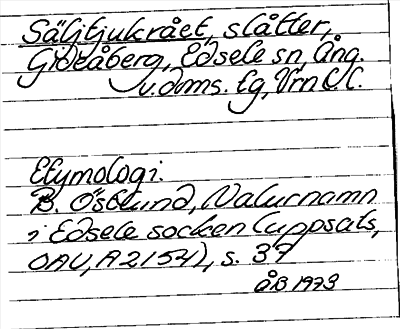 Säljtjukrået, slåtter,
Gideåberg, Edsele sn, Ång.
v. dms. tg, Vrn C.C.
Etymologi:
B. Östlund, Naturnamn
i Edsele socken (uppsats,
OAU, A 2157), s. 37
ÅB 1973